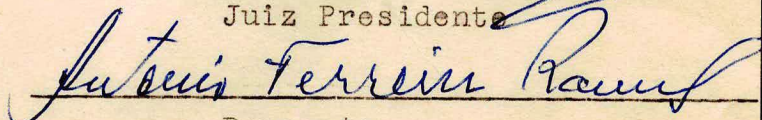 Juiz Presidente
Antonio Ferreira Ramos